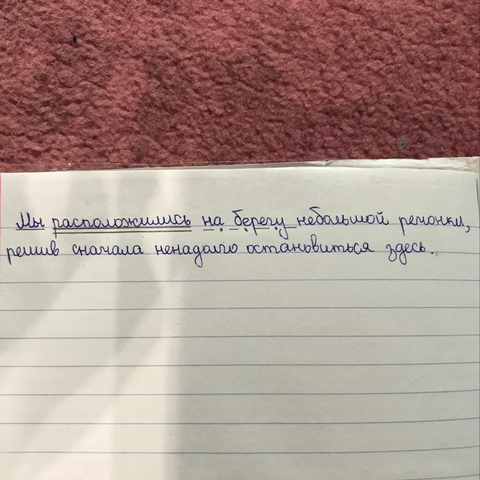 Мы расположились на берегу небольшой речонки,
решив сначала ненадолго остановиться здесь.